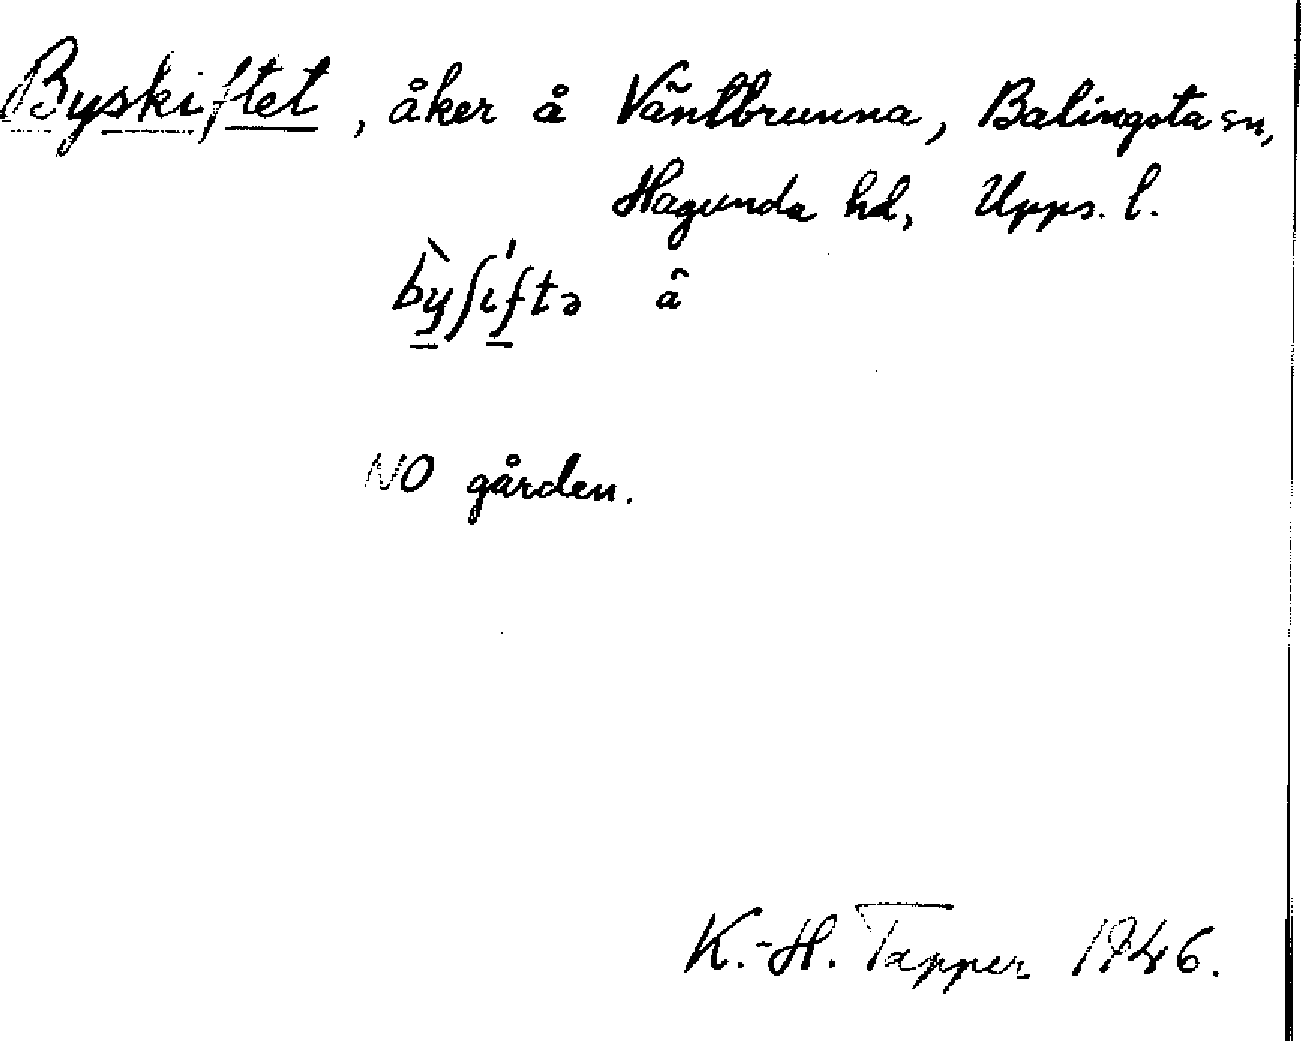 Byskiftet, åker å Väntbrunna, Balingsta sn,
Hagunda hd, Upps. l.
bỳʃíftə â
NO gården.
K.-H. Tapper 1946.